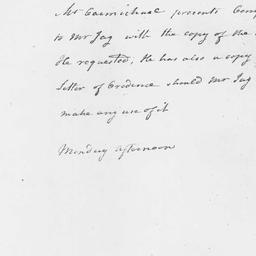 Mr Carmichael presents Com
to Mr Jay with the copy of the
He requested, He has also a copy
Letter of Credence should Mr Jay
make any use of it
Monday afternoon